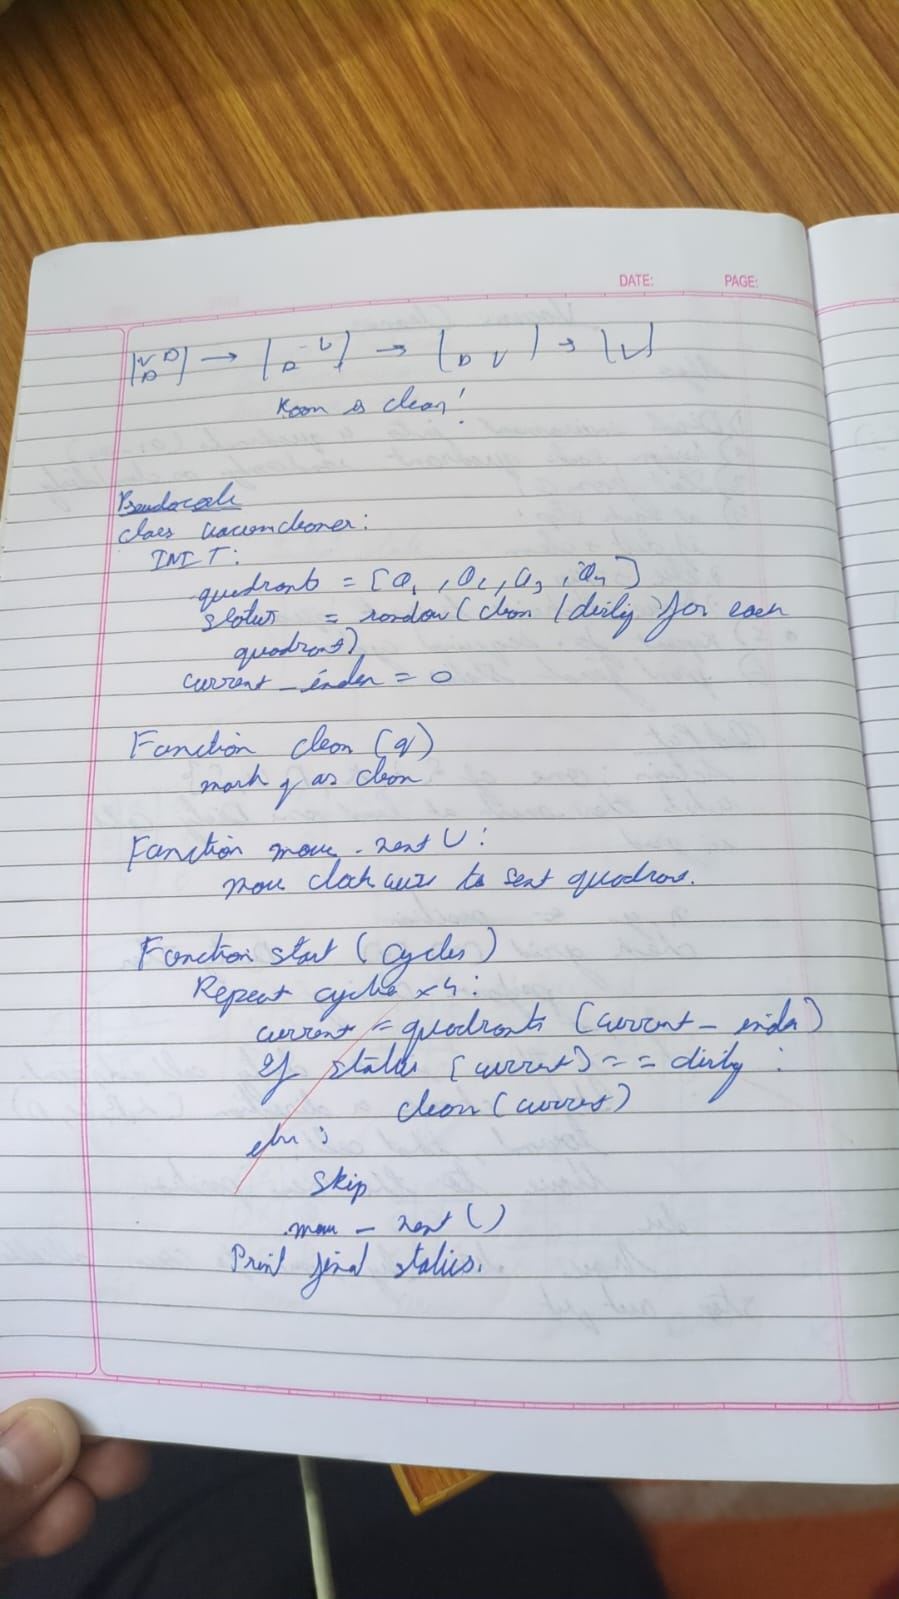 DATE: PAGE:
Room is clean!
Pseudocode
class vacuumcleaner:
INIT:
quadrants = [Q1, Q2, Q3, Q4]
status = random (clean / dirty for each
quadrant)
current_index = 0
Function clean (q)
mark q as clean
Function move-next ():
move clockwise to next quadrant.
Function start (cycles)
Repeat cycle x 4:
current = quadrants [current_index]
If status [current] == dirty:
clean (current)
else:
skip
move_next ()
Print final status.